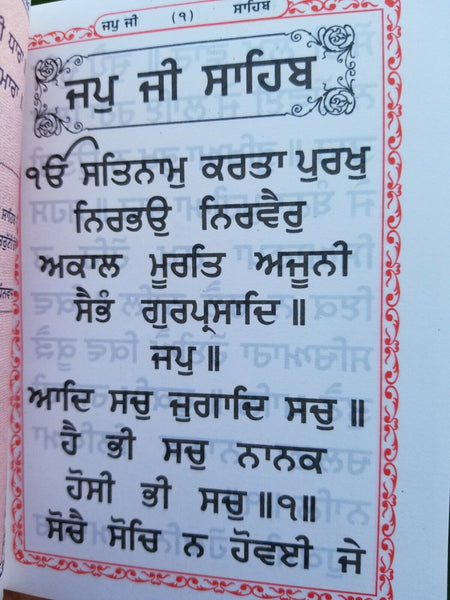 ਜਪੁ ਜੀ (੧) ਸਾਹਿਬ
ਜਪੁ ਜੀ ਸਾਹਿਬ
ੴ ਸਤਿਨਾਮੁ ਕਰਤਾ ਪੁਰਖੁ
ਨਿਰਭਉ ਨਿਰਵੈਰੁ
ਅਕਾਲ ਮੂਰਤਿ ਅਜੂਨੀ
ਸੈਭੰ ਗੁਰਪ੍ਰਸਾਦਿ ॥
ਜਪੁ ॥
ਆਦਿ ਸਚੁ ਜੁਗਾਦਿ ਸਚੁ ॥
ਹੈ ਭੀ ਸਚੁ ਨਾਨਕ
ਹੋਸੀ ਭੀ ਸਚੁ ॥੧॥
ਸੋਚੈ ਸੋਚਿ ਨ ਹੋਵਈ ਜੇ